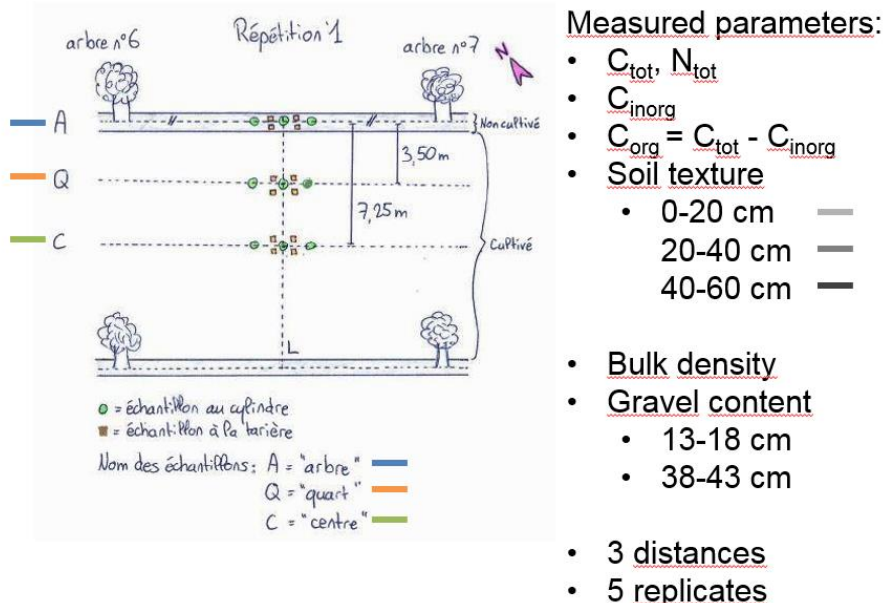 Répétition 1
arbre n°6
arbre n°7
N
A
Non cultivé
3,50m
Q
7,25m
C
Cultivé
L
= échantillon au cylindre
= échantillon à la tarière
Nom des échantillons: A = "arbre"
Q = "quart"
C = "centre"
Measured parameters:
• Ctot, Ntot
• Cinorg
• Corg = Ctot - Cinorg
• Soil texture
• 0-20 cm
20-40 cm
40-60 cm
• Bulk density
• Gravel content
• 13-18 cm
• 38-43 cm
• 3 distances
• 5 replicates